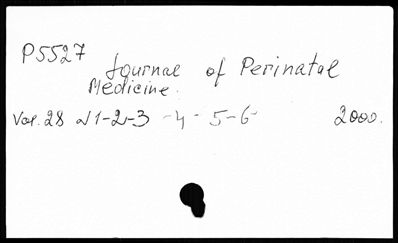 P5527
Journal of Perinatal
Medicine.
Vol. 28 N1-2-3 -4 - 5-6 2000.